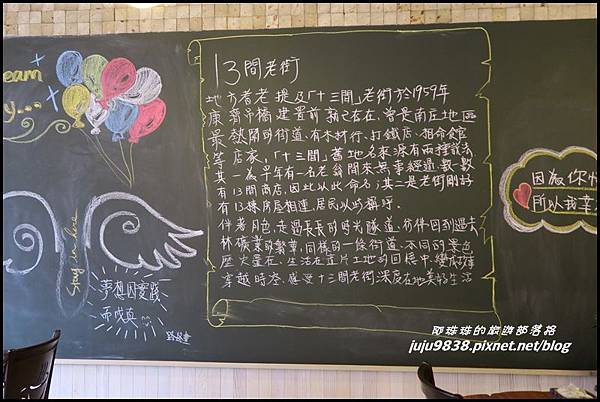 eam
y...
13間老街
地方耆老提及「十三間」老街於1959年
康莊吊橋建置前就已存在、曾是南庄地區
最熱鬧的街道、有木材行、打鐵店、相命館
等店家。「十三間」舊地名來源有兩種說法
其一為早年有一名老翁閒來無事經過數一數
有13間商店,因此以此命名;其二是老街剛好
有13棟房屋相連,居民以此稱呼。
伴著月色,走過長長的時光隧道,彷彿回到過去
林礦業的繁華,同樣的一條街道、不同的景色
歷史堂在、生活在這片土地的回憶中,
穿越時空、感受十三間老街深度在地美好生活
Stay in love
夢想因實踐
而成真
因為你
所以我幸
耶珠珠的旅遊部落格
juju9838.pixnet.net/blog